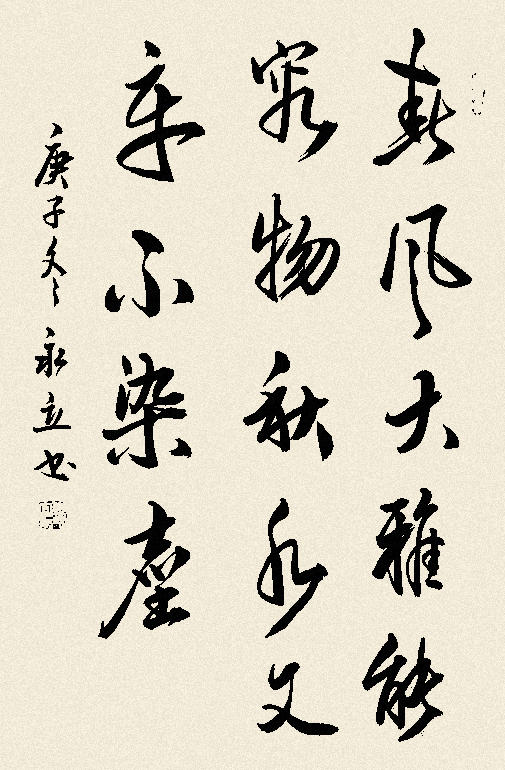 春风大雅能
容物秋水文
章不染尘
庚子冬永立书